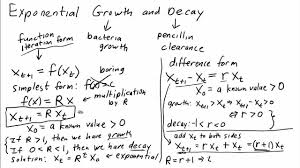 Exponential Growth and Decay
function iteration form
bacteria growth
penicillin clearance
x_{t+1} = f(x_t)
boring
simplest form: f(x) = c
f(x) = Rx
multiplication by R
x_{t+1} = R x_t
x_0 = a known value > 0
If R > 1, then we have growth
If 0 < R < 1, then we have decay
solution: x_t = R^t x_0 ← exponential
difference form
x_{t+1} - x_t = r x_t
x_0 = a known value > 0
growth: x_{t+1} > x_t ⇔ x_{t+1} - x_t > 0
⇔ r > 0
decay: -1 < r < 0
add x_t to both sides
x_{t+1} = r x_t + x_t = (r+1) x_t
R = r + 1